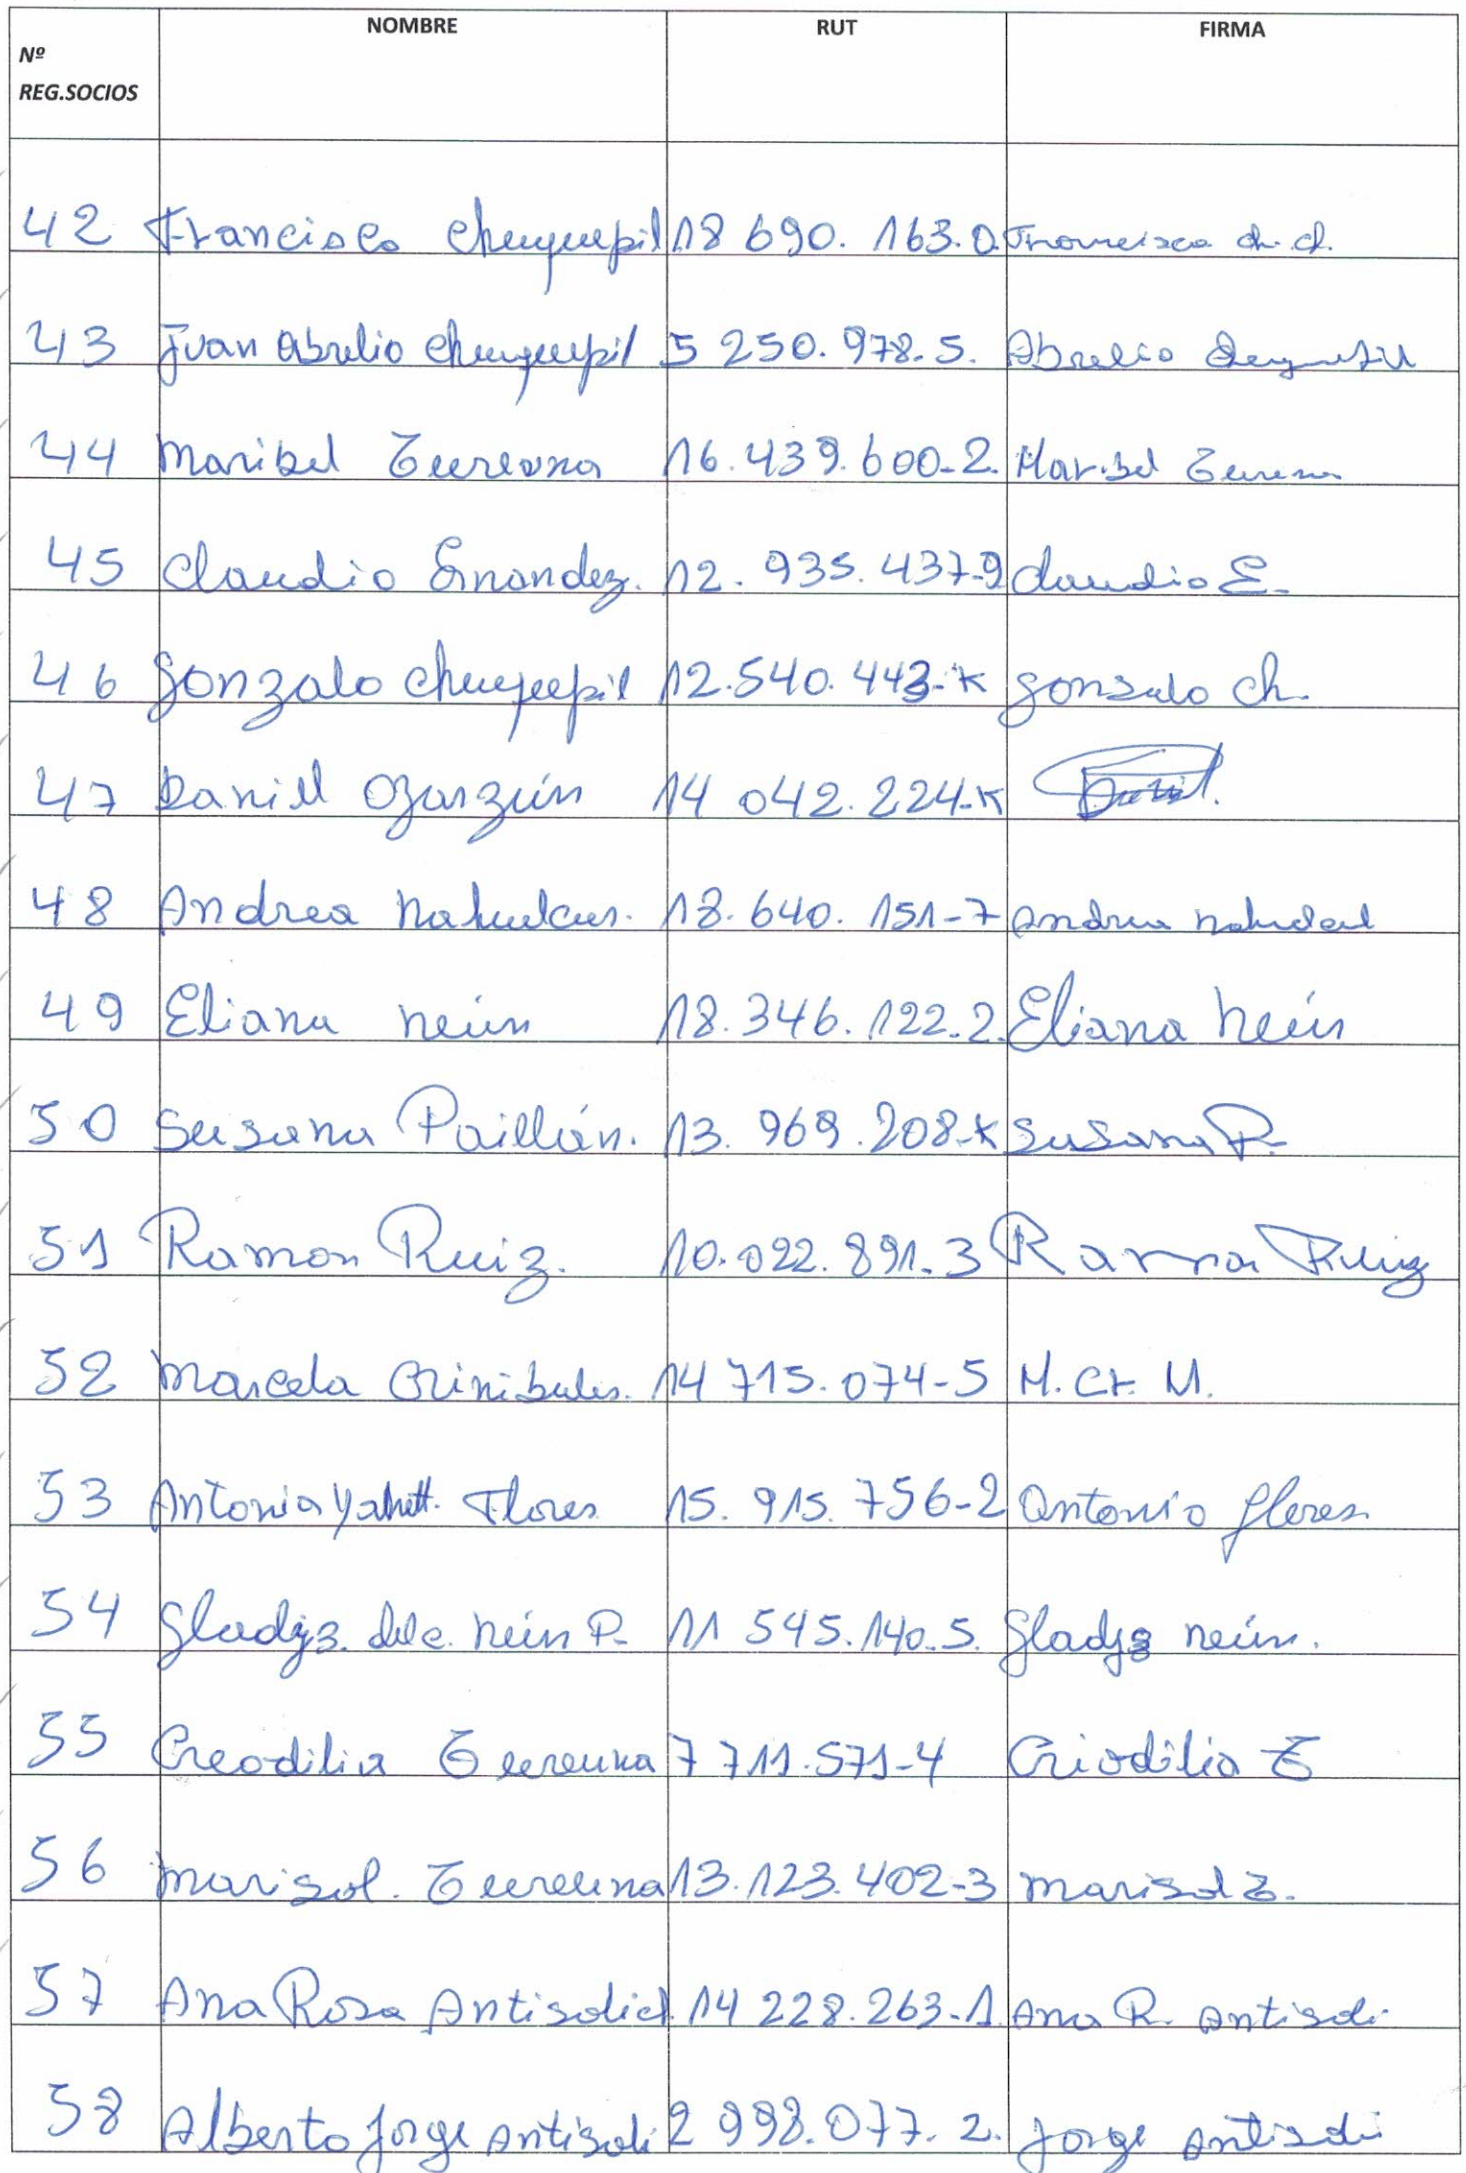 NOMBRE RUT FIRMA
Nº
REG.SOCIOS
42 Francisco Chuyuepil 18 690. 163.0. Francisco ch. ch.
43 Juan Abrelio Chuyuepil 5 250. 978. 5. Abrelio
44 Maribel 16. 439. 600-2. Maribel
45 Claudio Ernandez. 12. 935. 437-9 Claudio E.
46 Gonzalo Chuyuepil 12.540. 443-K Gonzalo Ch.
47 Daniel Ogarzún 14 042. 224-K
48 Andrea 18. 640. 151-7 Andrea
49 Eliana Neún 18. 346. 122.2. Eliana Neún
50 Susana Paillán. 13. 969. 208-K Susana P.
51 Ramon Ruiz. 10. 022. 891. 3 Ramon Ruiz
52 Marcela 14 715. 074-5 M. Cr. M.
53 Antonia Flores 15. 915. 756-2 Antonia Flores
54 Gladys. del c. Neún P. 11 545. 140. 5. Gladys Neún.
55 Creodilia 7 711. 571-4 Criodilia T
56 Marisol. 13. 123. 402-3 Marisol T.
57 Ana Rosa 14 228. 263-1. Ana R. Antisoli
58 Alberto Jorge Antisoli 2 998. 077. 2. Jorge Antisoli